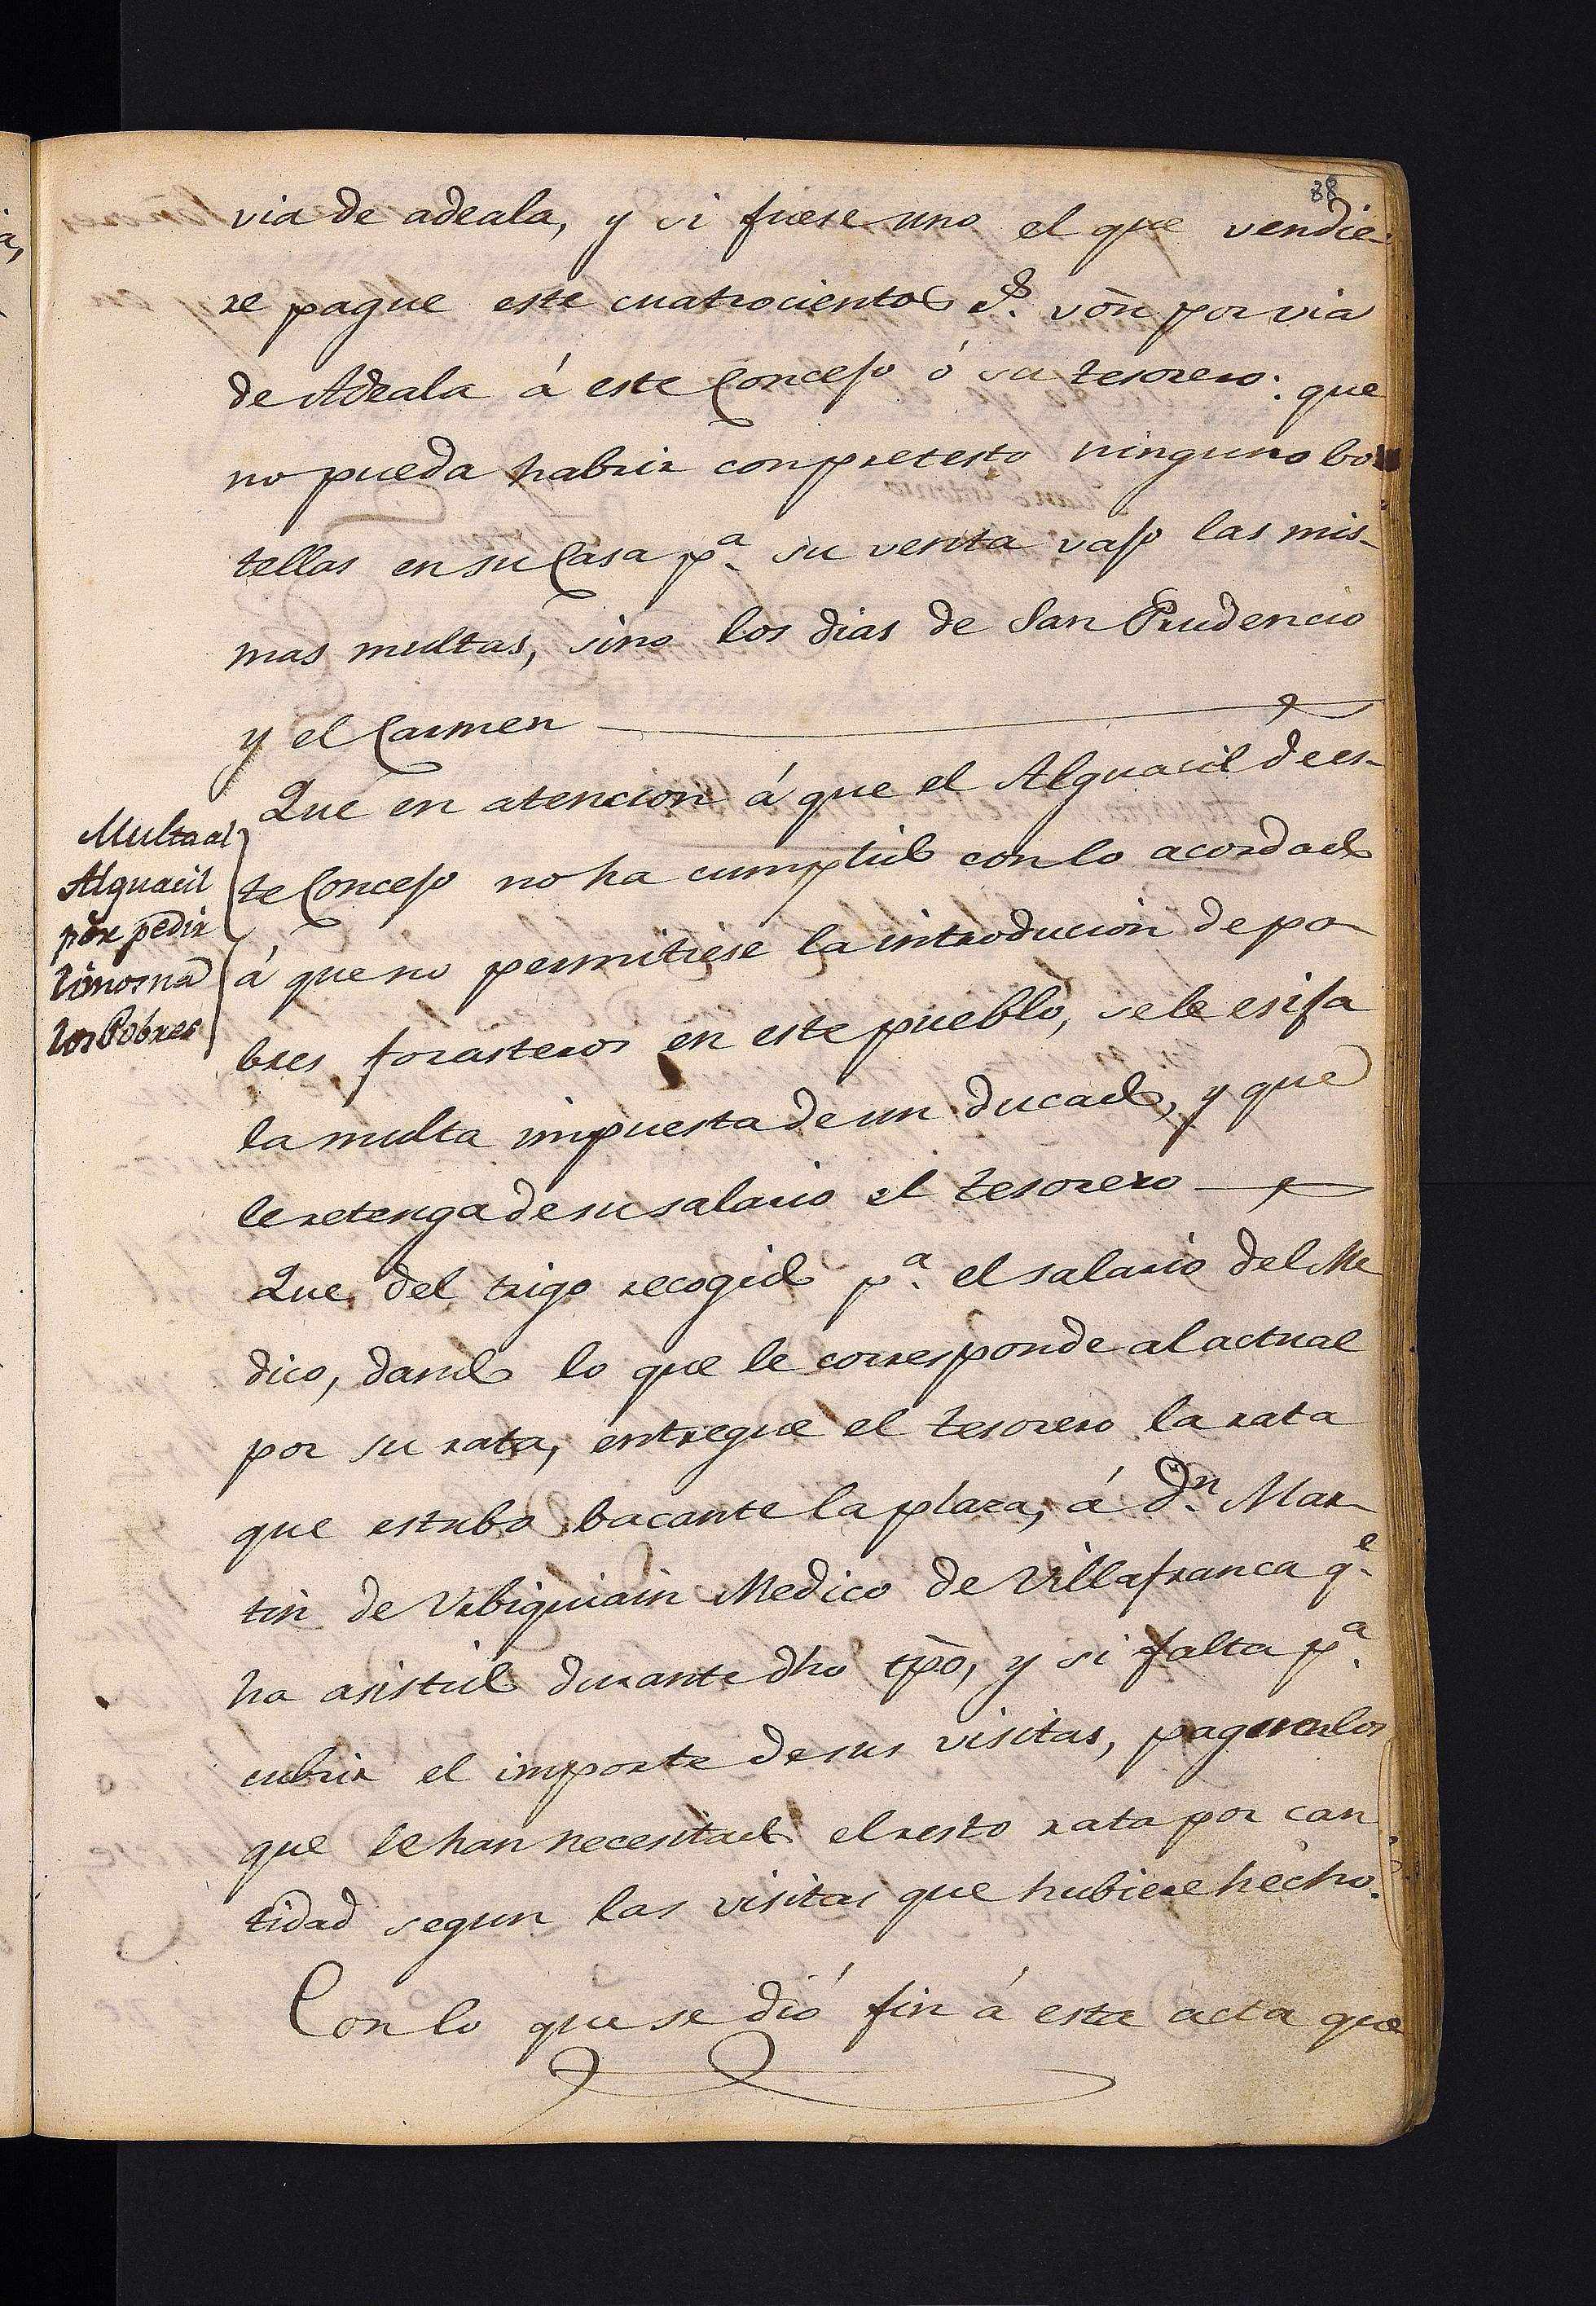 38
via de adeala, y si fuese uno el que vendie-
re pague este cuatrocientos rs. vōn por via
de Adeala á este Concejo ó su tesorero: que
no pueda habrir con pretesto ninguno bo
tellas en su Casa pa. su venta vajo las mis-
mas multas, sino los dias de San Prudencio
y el Carmen
Que en atencion á que el Alguacil de es-
te Concejo no ha cumplido con lo acordado
á que no permitiese la introducion de po-
bres forasteros en este pueblo, se le esija
la multa impuesta de un ducado, y que
le retenga de su salario el tesorero
Multa al
Alguacil
por pedir
limosna
los Pobres
Que del trigo recogido pa. el salario del Me
dico, dando lo que le corresponde al actual
por su rata, entregue el tesorero la rata
que estubo bacante la plaza, á Dn. Mar-
tin de Urbiquiain Medico de Villafranca qe.
ha asistido durante dho tp̄o, y si falta pa.
cubrir el importe de sus visitas, paguen los
que le han necesitado el resto rata por can
tidad segun las visitas que hubiere hecho.
Con lo que se dió fin á esta acta que